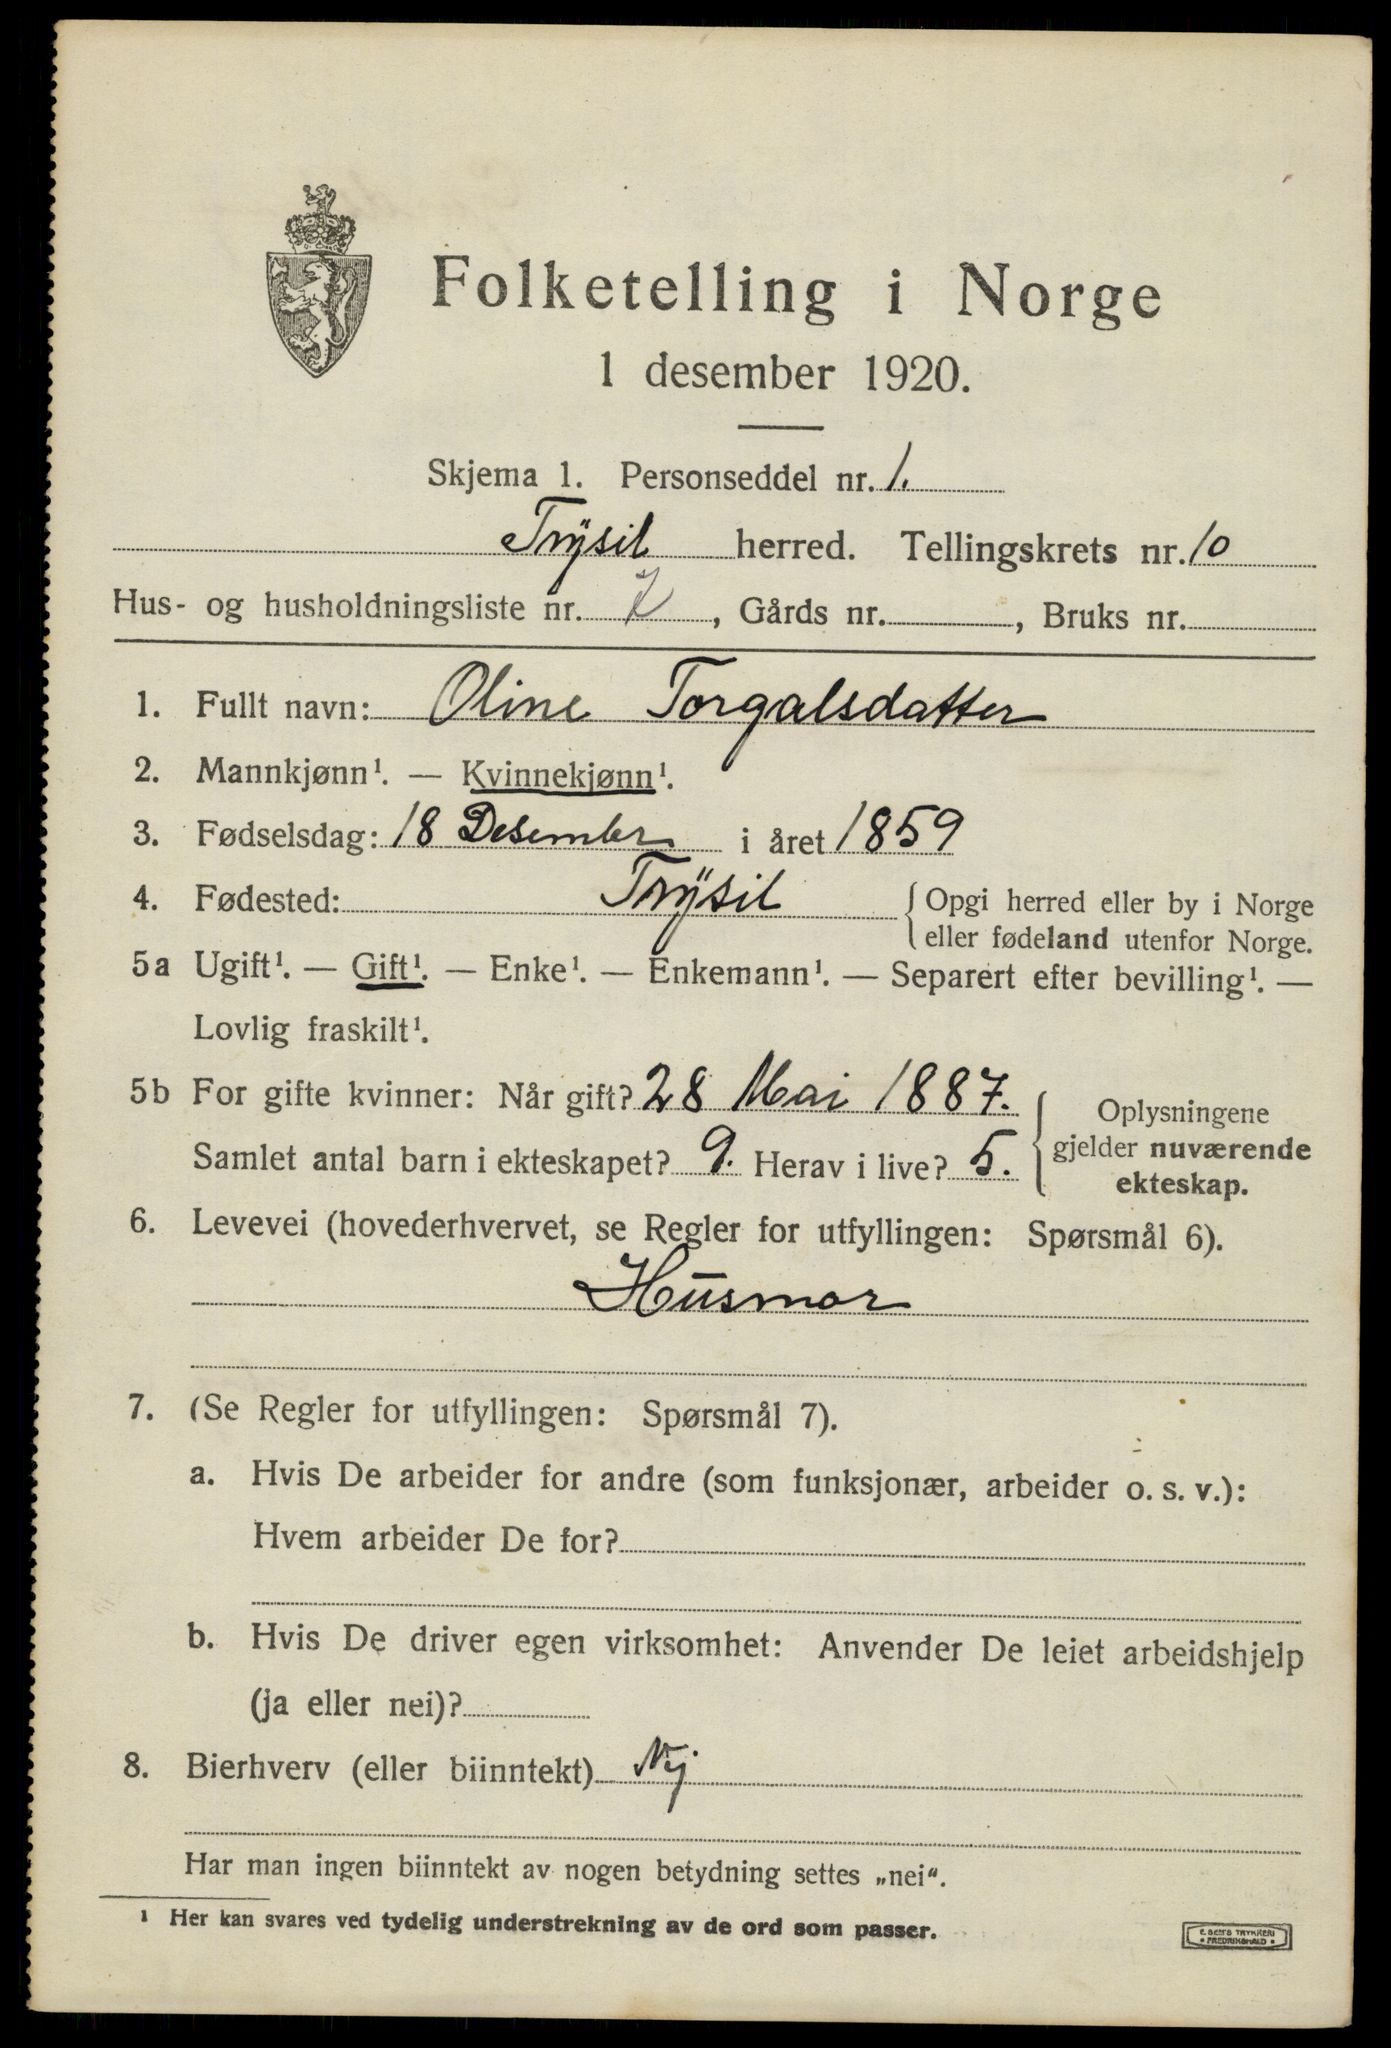 Folketelling i Norge
1 desember 1920.
Skjema 1. Personseddel nr. 1.
Trysil herred. Tellingskrets nr. 10
Hus- og husholdningsliste nr. 7, Gårds nr. , Bruks nr.
1. Fullt navn: Oline Torgalsdatter
2. Mannkjønn¹. — Kvinnekjønn¹.
3. Fødselsdag: 18 Desember i året 1859
4. Fødested: Trysil { Opgi herred eller by i Norge
eller fødeland utenfor Norge.
5a Ugift¹. — Gift¹. — Enke¹. — Enkemann¹. — Separert efter bevilling¹. —
Lovlig fraskilt¹.
5b For gifte kvinner: Når gift? 28 Mai 1887. { Oplysningene
Samlet antal barn i ekteskapet? 9. Herav i live? 5. gjelder nuværende
ekteskap.
6. Levevei (hovederhvervet, se Regler for utfyllingen: Spørsmål 6).
Husmor
7. (Se Regler for utfyllingen: Spørsmål 7).
a. Hvis De arbeider for andre (som funksjonær, arbeider o. s. v.):
Hvem arbeider De for?
b. Hvis De driver egen virksomhet: Anvender De leiet arbeidshjelp
(ja eller nei)?
8. Bierhverv (eller biinntekt) Nej
Har man ingen biinntekt av nogen betydning settes „nei“.
¹ Her kan svares ved tydelig understrekning av de ord som passer.
E. SEM'S TRYKKERI
• FREDRIKSHALD •